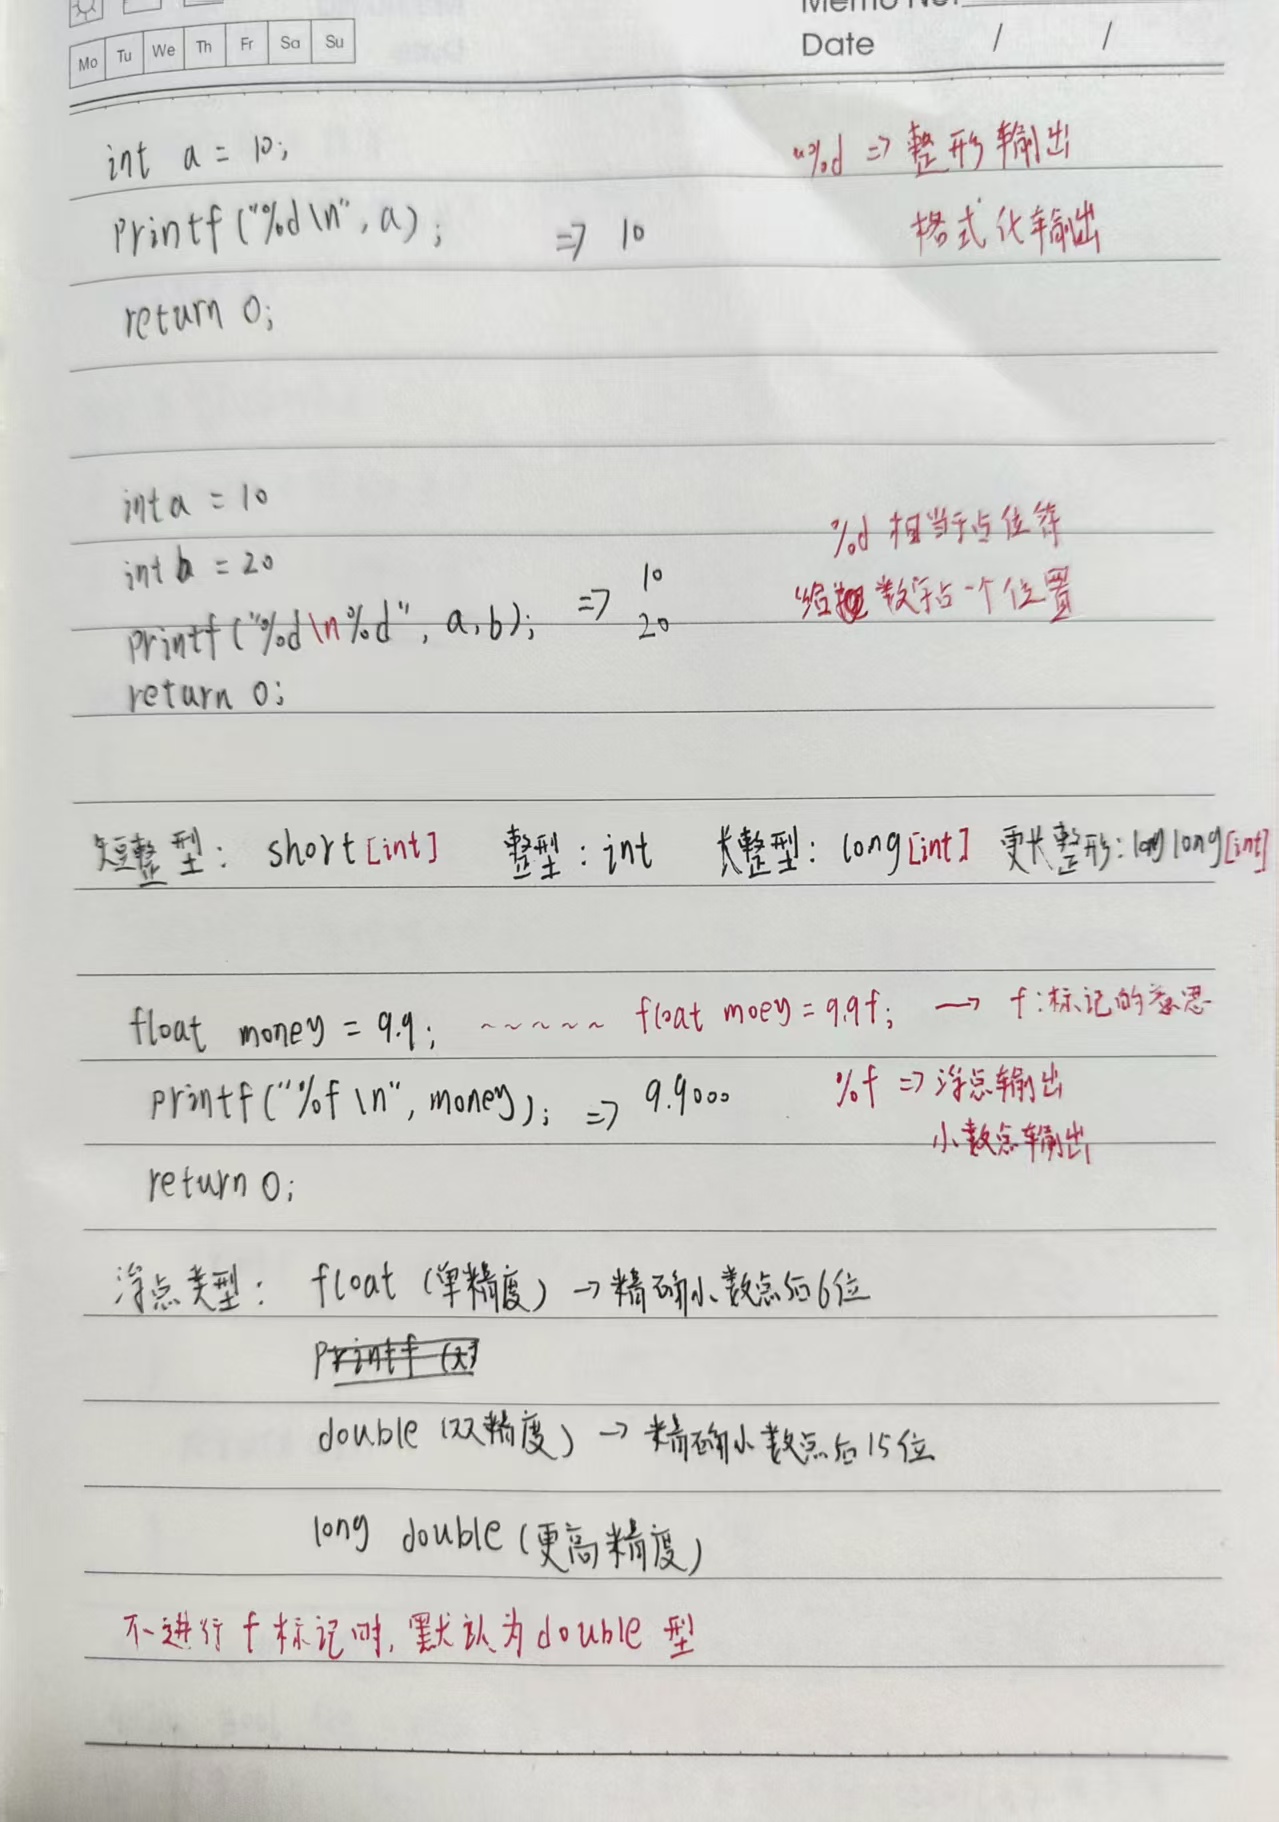 Memo No.
Mo Tu We Th Fr Sa Su
Date / /
int a = 10;
"%d => 整形输出
printf("%d\n", a); => 10
格式化输出
return 0;
int a = 10
%d 相当于占位符
int b = 20
给 数字占一个位置
printf("%d\n%d", a,b); => 10
20
return 0;
短整型: short[int] 整型: int 长整型: long[int] 更长整形: long long[int]
float money = 9.9; ~~~~~ float moey = 9.9f; → f:标记的意思
printf("%f \n", money); => 9.9000 %f => 浮点输出
小数点输出
return 0;
浮点类型: float (单精度) → 精确小数点后6位
double (双精度) → 精确小数点后15位
long double (更高精度)
不进行 f 标记时, 默认为 double 型